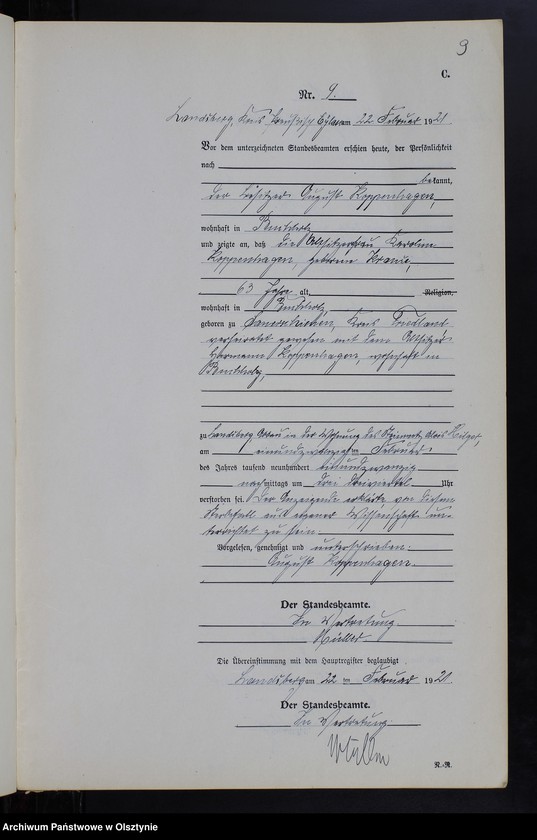 9
C.
Nr. 9.
Landsberg, Kreis Preußisch Eylau am 22 Februar 1921
Vor dem unterzeichneten Standesbeamten erschien heute, der Persönlichkeit
nach
bekannt,
der Besitzer August Koppenhagen,
wohnhaft in
und zeigte an, daß die Altsitzerfrau Karoline
Koppenhagen, geborene Krause,
63 Jahre alt, Religion,
wohnhaft in
geboren zu Kreis Friedland
verheiratet gewesen mit dem Altsitzer
Hermann Koppenhagen, wohnhaft in
zu Landsberg in der Wohnung des
am einundzwanzigsten Februar
des Jahres tausend neunhundert einundzwanzig
nachmittags um drei dreiviertel Uhr
verstorben sei. Der Anzeigende erklärte von diesem
Sterbefall aus eigener Wissenschaft un-
terrichtet zu sein.
Vorgelesen, genehmigt und unterschrieben:
August Koppenhagen.
Der Standesbeamte.
In Vertretung
Müller.
Die Übereinstimmung mit dem Hauptregister beglaubigt
Landsberg am 22 ten Februar 1921
Der Standesbeamte.
In Vertretung.
Müller
R.-R.
Archiwum Państwowe w Olsztynie